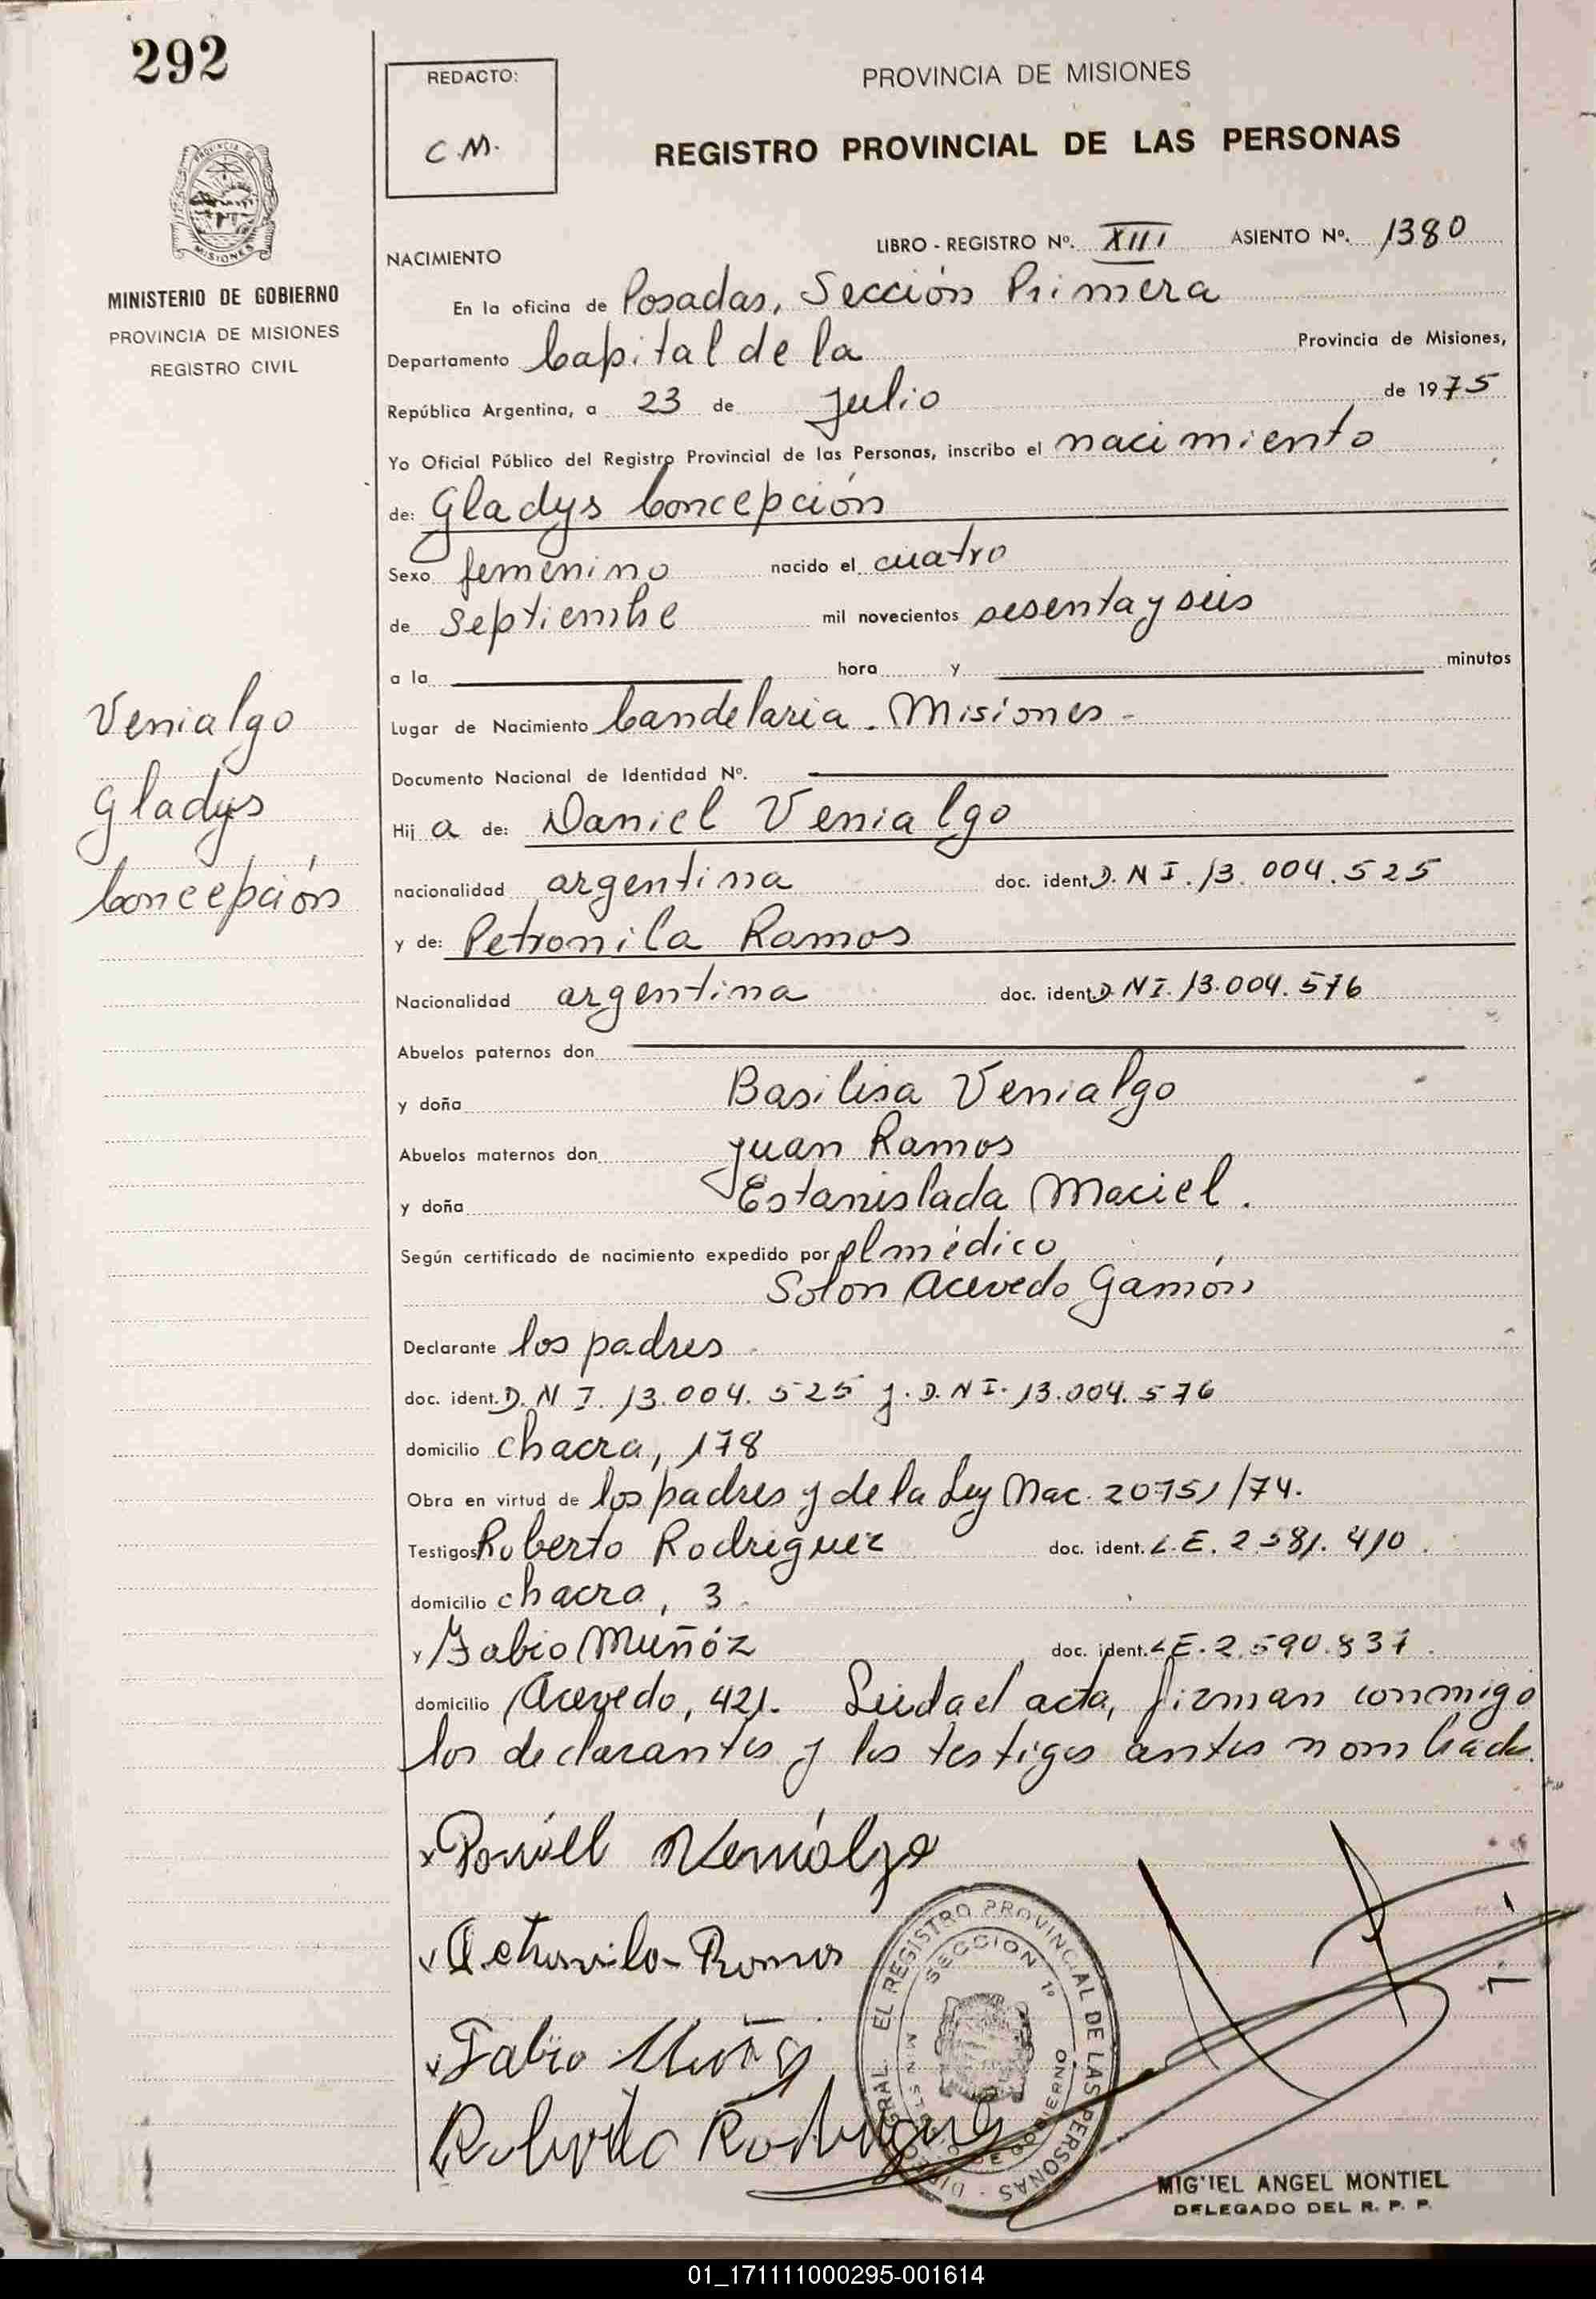 292
REDACTO:
C.M.
PROVINCIA DE MISIONES
REGISTRO PROVINCIAL DE LAS PERSONAS
PROVINCIA DE
MISIONES
MINISTERIO DE GOBIERNO
PROVINCIA DE MISIONES
REGISTRO CIVIL
NACIMIENTO LIBRO - REGISTRO Nº. XIII ASIENTO Nº. 1380
En la oficina de Posadas, Sección Primera
Departamento Capital de la Provincia de Misiones,
República Argentina, a 23 de Julio de 1975
Yo Oficial Público del Registro Provincial de las Personas, inscribo el nacimiento
de: Gladys Concepción
Sexo femenino nacido el cuatro
de septiembre mil novecientos sesenta y seis
a la hora y minutos
Venialgo
Gladys
Concepción
Lugar de Nacimiento Candelaria. Misiones -
Documento Nacional de Identidad Nº.
Hij a de: Daniel Venialgo
nacionalidad argentina doc. ident. D.N I. 13.004.525
y de: Petronila Ramos
Nacionalidad argentina doc. ident. D.NI. 13.004.576
Abuelos paternos don
y doña Basilisa Venialgo
Abuelos maternos don Juan Ramos
y doña Estanislada Maciel.
Según certificado de nacimiento expedido por el médico
Solon Acevedo Gamón
Declarante los padres
doc. ident. D. N I. 13.004.525 y. D.NI. 13.004.576
domicilio chacra, 178
Obra en virtud de los padres y de la Ley Nac. 20751/74.
Testigos Roberto Rodriguez doc. ident. L.E. 2.581.410.
domicilio chacra, 3.
y Fabio Muñóz doc. ident. LE. 2.590.837.
domicilio Acevedo, 421. Leida el acta, firman conmigo
los declarantes y los testigos antes nombrados.
x Daniel Venialgo
x Petronila Ramos
x Fabio Muñoz
Roberto Rodriguez
EL REGISTRO PROVINCIAL DE LAS PERSONAS
SECCION 1º
MINISTERIO DE GOBIERNO
MIGUEL ANGEL MONTIEL
DELEGADO DEL R. P. P.
01_171111000295-001614